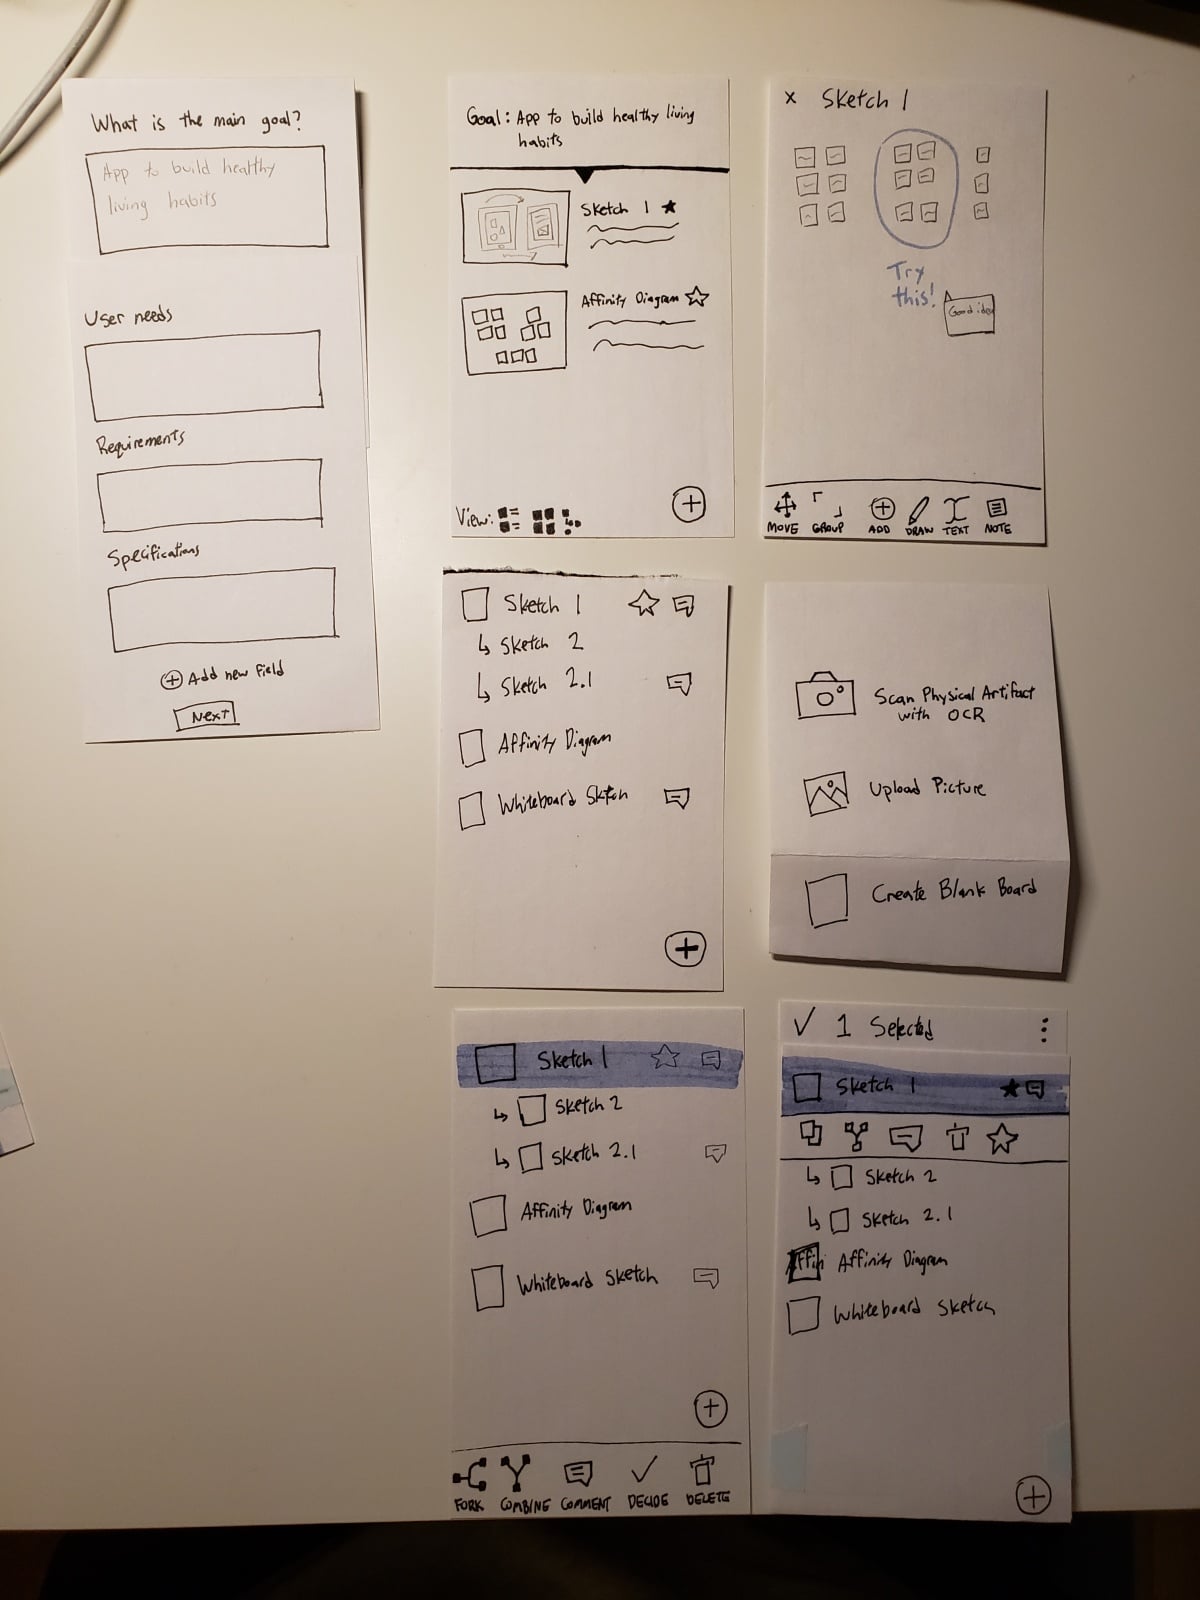 What is the main goal?
App to build healthy
living habits
User needs
Requirements
Specifications
Add new field
NEXT
Goal: App to build healthy living
habits
Sketch 1
Affinity Diagram
View:
x Sketch 1
Try
this!
Good idea
MOVE GROUP ADD DRAW TEXT NOTE
Sketch 1
Sketch 2
Sketch 2.1
Affinity Diagram
Whiteboard Sketch
Scan Physical Artifact
with OCR
Upload Picture
Create Blank Board
Sketch 1
Sketch 2
Sketch 2.1
Affinity Diagram
Whiteboard Sketch
FORK COMBINE COMMENT DECIDE DELETE
1 Selected
Sketch 1
Sketch 2
Sketch 2.1
Affinity Diagram
Whiteboard Sketch